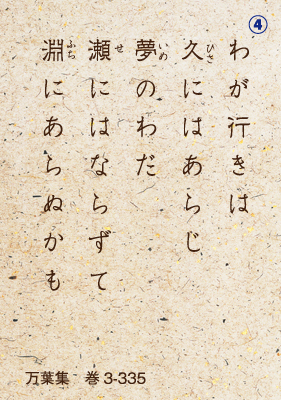 ④
わが行きは
久にはあらじ
夢のわだ
瀬にはならずて
淵にあらぬかも
ひさ
いめ
せ
ふち
万葉集 巻3-335